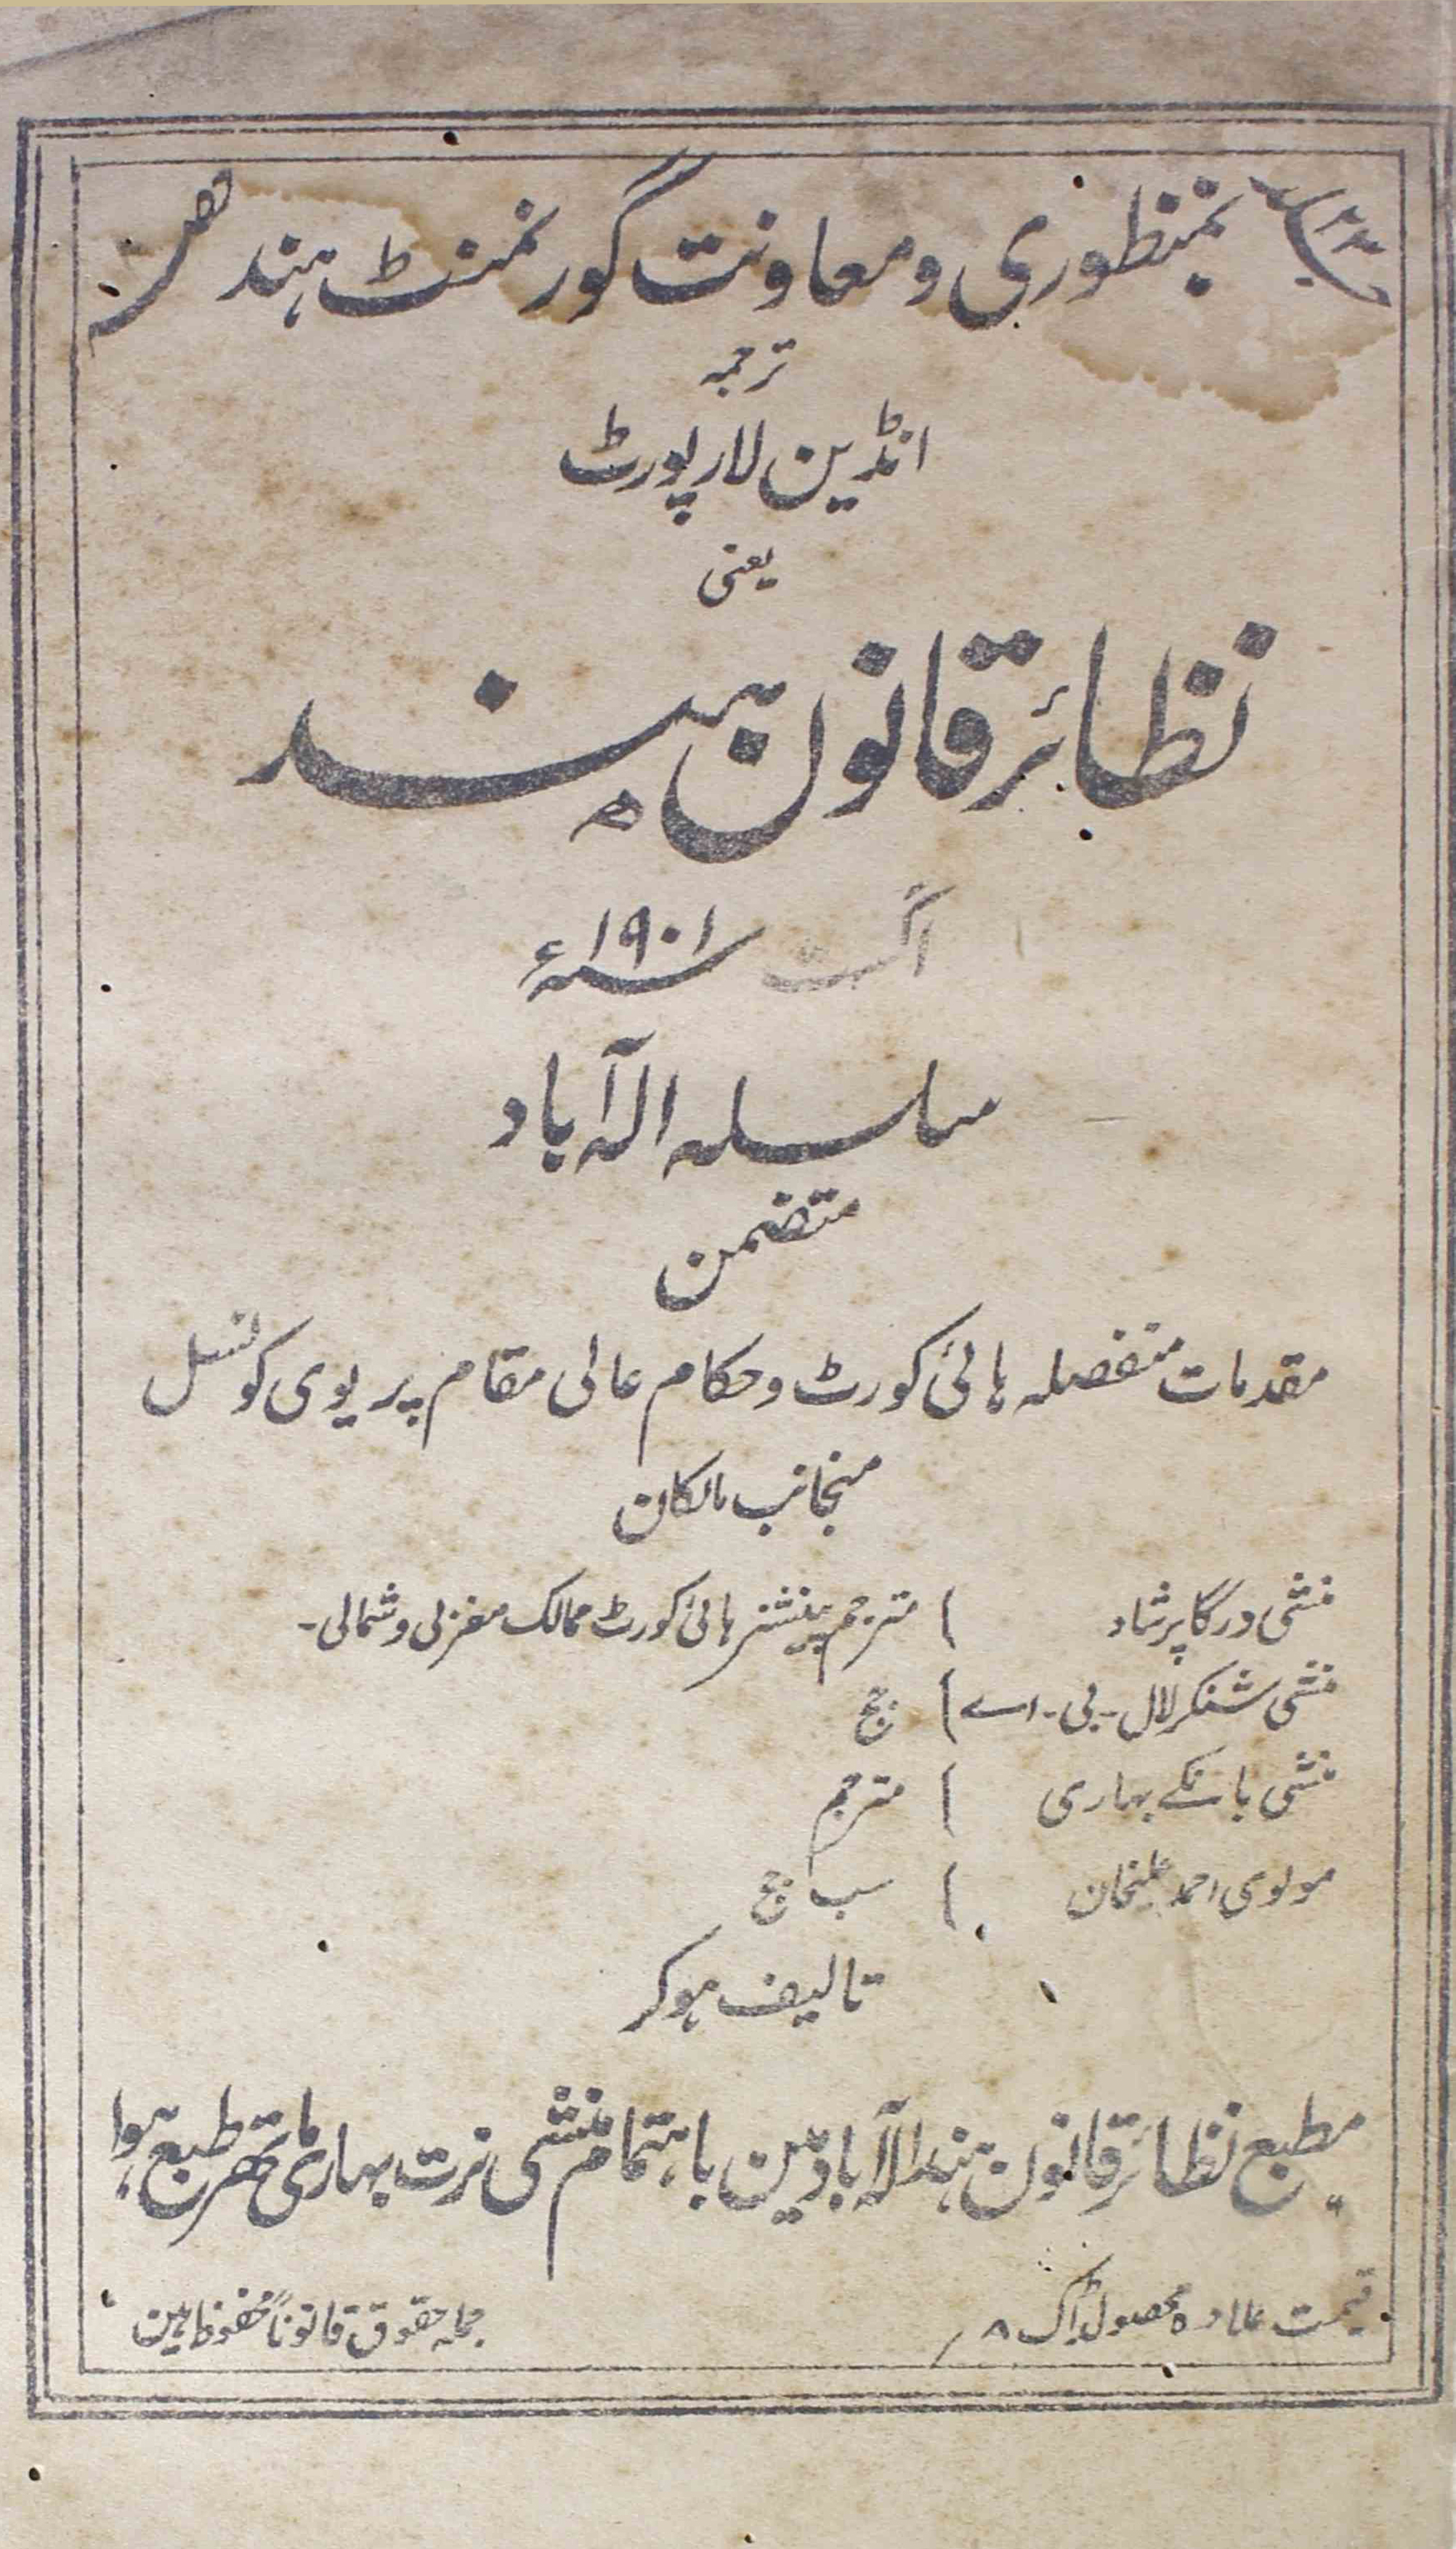 بمنظوری و معاونت گورنمنٹ ہند
ترجمہ
انڈین لا رپورٹ
یعنی
نظائر قانون ہند
اگست ۱۹۰۱ء
سلسلہ الہ آباد
متضمن
مقدمات منفصلہ ہائی کورٹ و حکام عالی مقام پریوی کونسل
منجانب مالکان
منشی درگا پرشاد ) مترجم پنشنر ہائی کورٹ ممالک مغربی و شمالی۔
منشی شنکر لال۔ بی۔ اے ) جج
منشی بانکے بہاری ) مترجم
مولوی احمد علیخان ) سب جج
تالیف ہوکر
مطبع نظائر قانون ہند الہ آباد مین باہتمام منشی نرت بہاری ماتھر طبع ہوا
قیمت علاوہ محصول ڈاک ۸ ؍
جملہ حقوق قانوناً محفوظ ہین